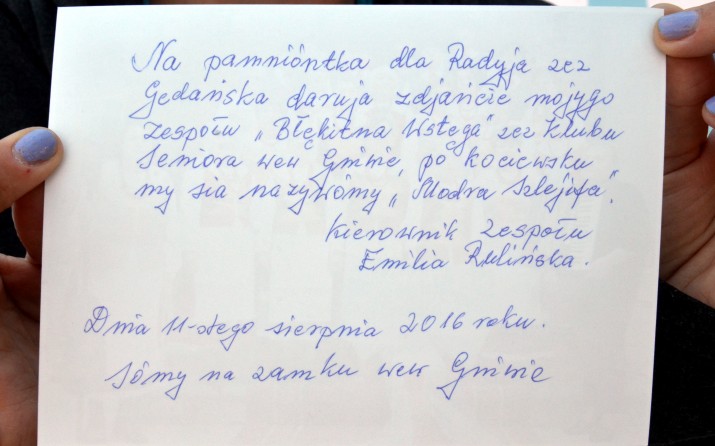 Na pamnióntka dla Radyja zez
Gedańska daruja zdjańcie mojygo
zespołu „Błękitna Wstęga" zez klubu
Seniora wew Gniwie, po kociewsku
my sia nazywómy „Modra Szlejfa".
Kierownik Zespołu
Emilia Rulińska.
Dnia 11-stego sierpnia 2016 roku.
Sómy na zamku wew Gniwie